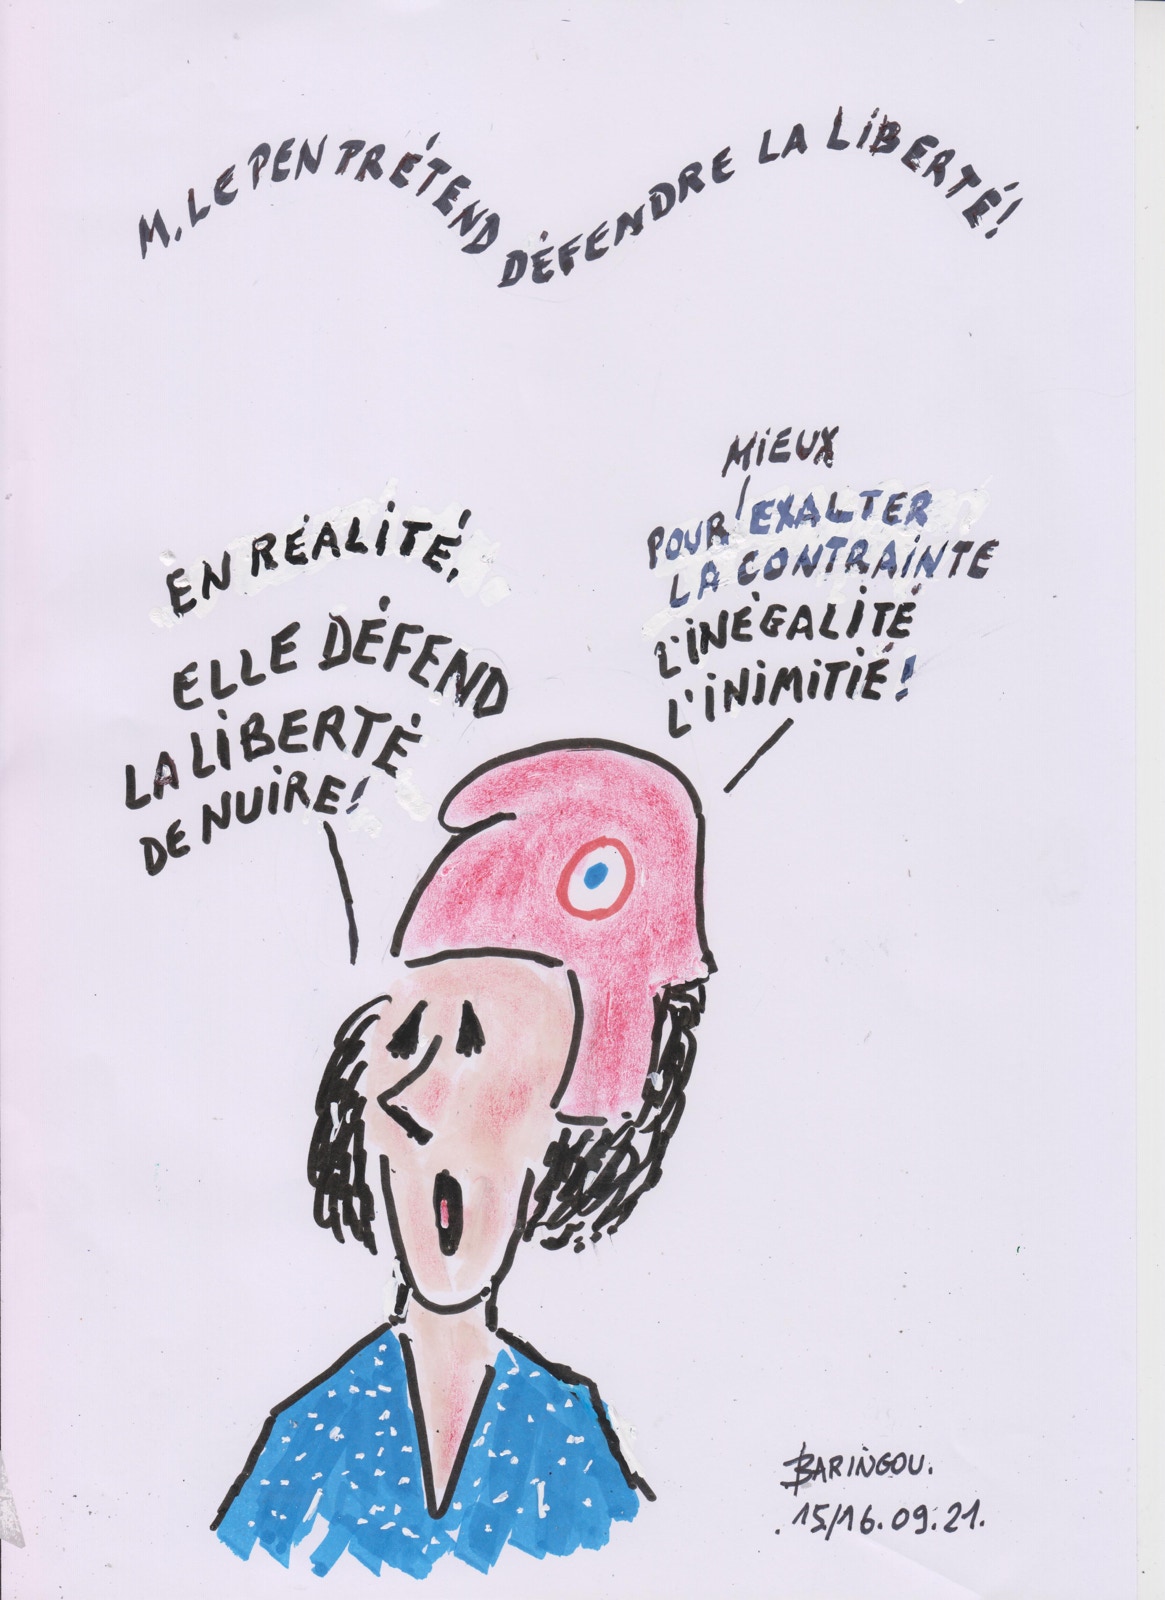 M. LE PEN PRÉTEND DÉFENDRE LA LIBERTÉ!
EN RÉALITÉ,
ELLE DÉFEND
LA LIBERTÉ
DE NUIRE!
MIEUX
POUR EXALTER
LA CONTRAINTE
L'INÉGALITÉ
L'INIMITIÉ!
BARINGOU.
.15/16.09.21.